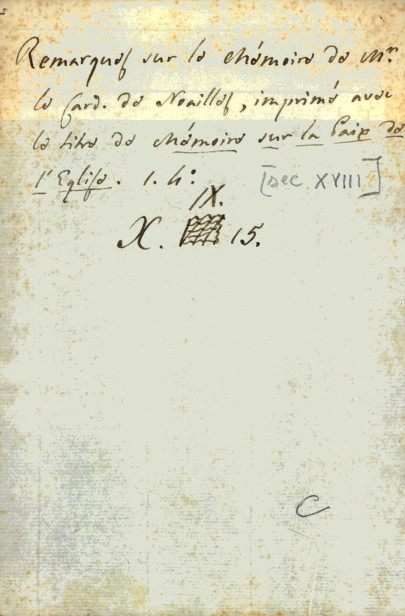 Remarques sur le Mémoire de Mr.
le Card. de Noailles, imprimé avec
le titre de Mémoire sur la Paix de
l'Eglise. 1. 4º.
[Sec. XVIII]
IX.
X. 15.
C